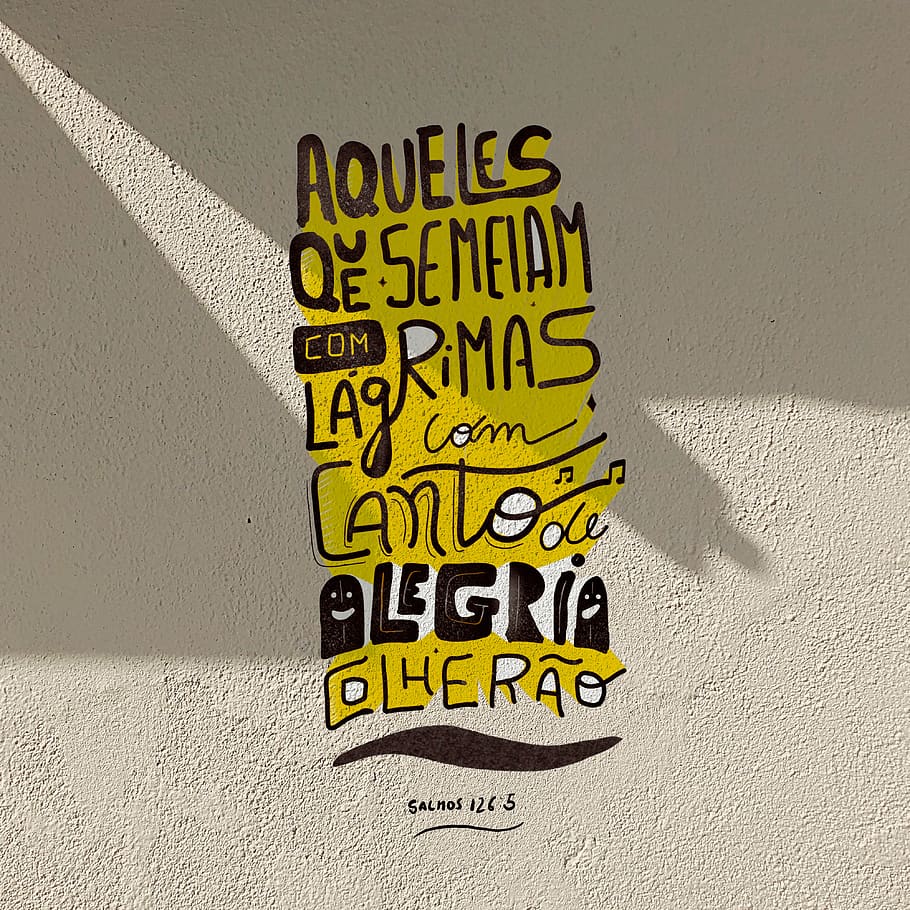 AQUELES
QUE SEMEIAM
COM
LÁGRIMAS com
CANTO de
ALEGRIA
COLHERÃO
SALMOS 126:5